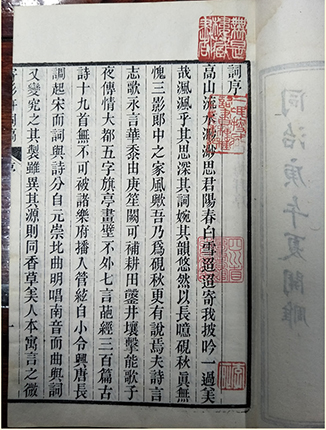 同治庚午夏開雕
詞序
高山流水渺渺思君陽春白雪迢迢寄我披吟一過美
哉渢渢乎其思深其詞婉其韻悠然以長噫硯秋眞無
愧三影郎中之家風歟吾乃爲硯秋更有說焉夫詩言
志歌永言華黍由庚笙闕可補耕田鑿井壤擊能歌子
夜傳情大都五字旗亭畫壁不外七言葩經三百篇古
詩十九首無不可被諸樂府播入管絃自小令興唐長
調起宋而詞與詩分自元崇北曲明唱南音而曲與詞
又變究之其製雖異其源則同香草美人本寓言之微